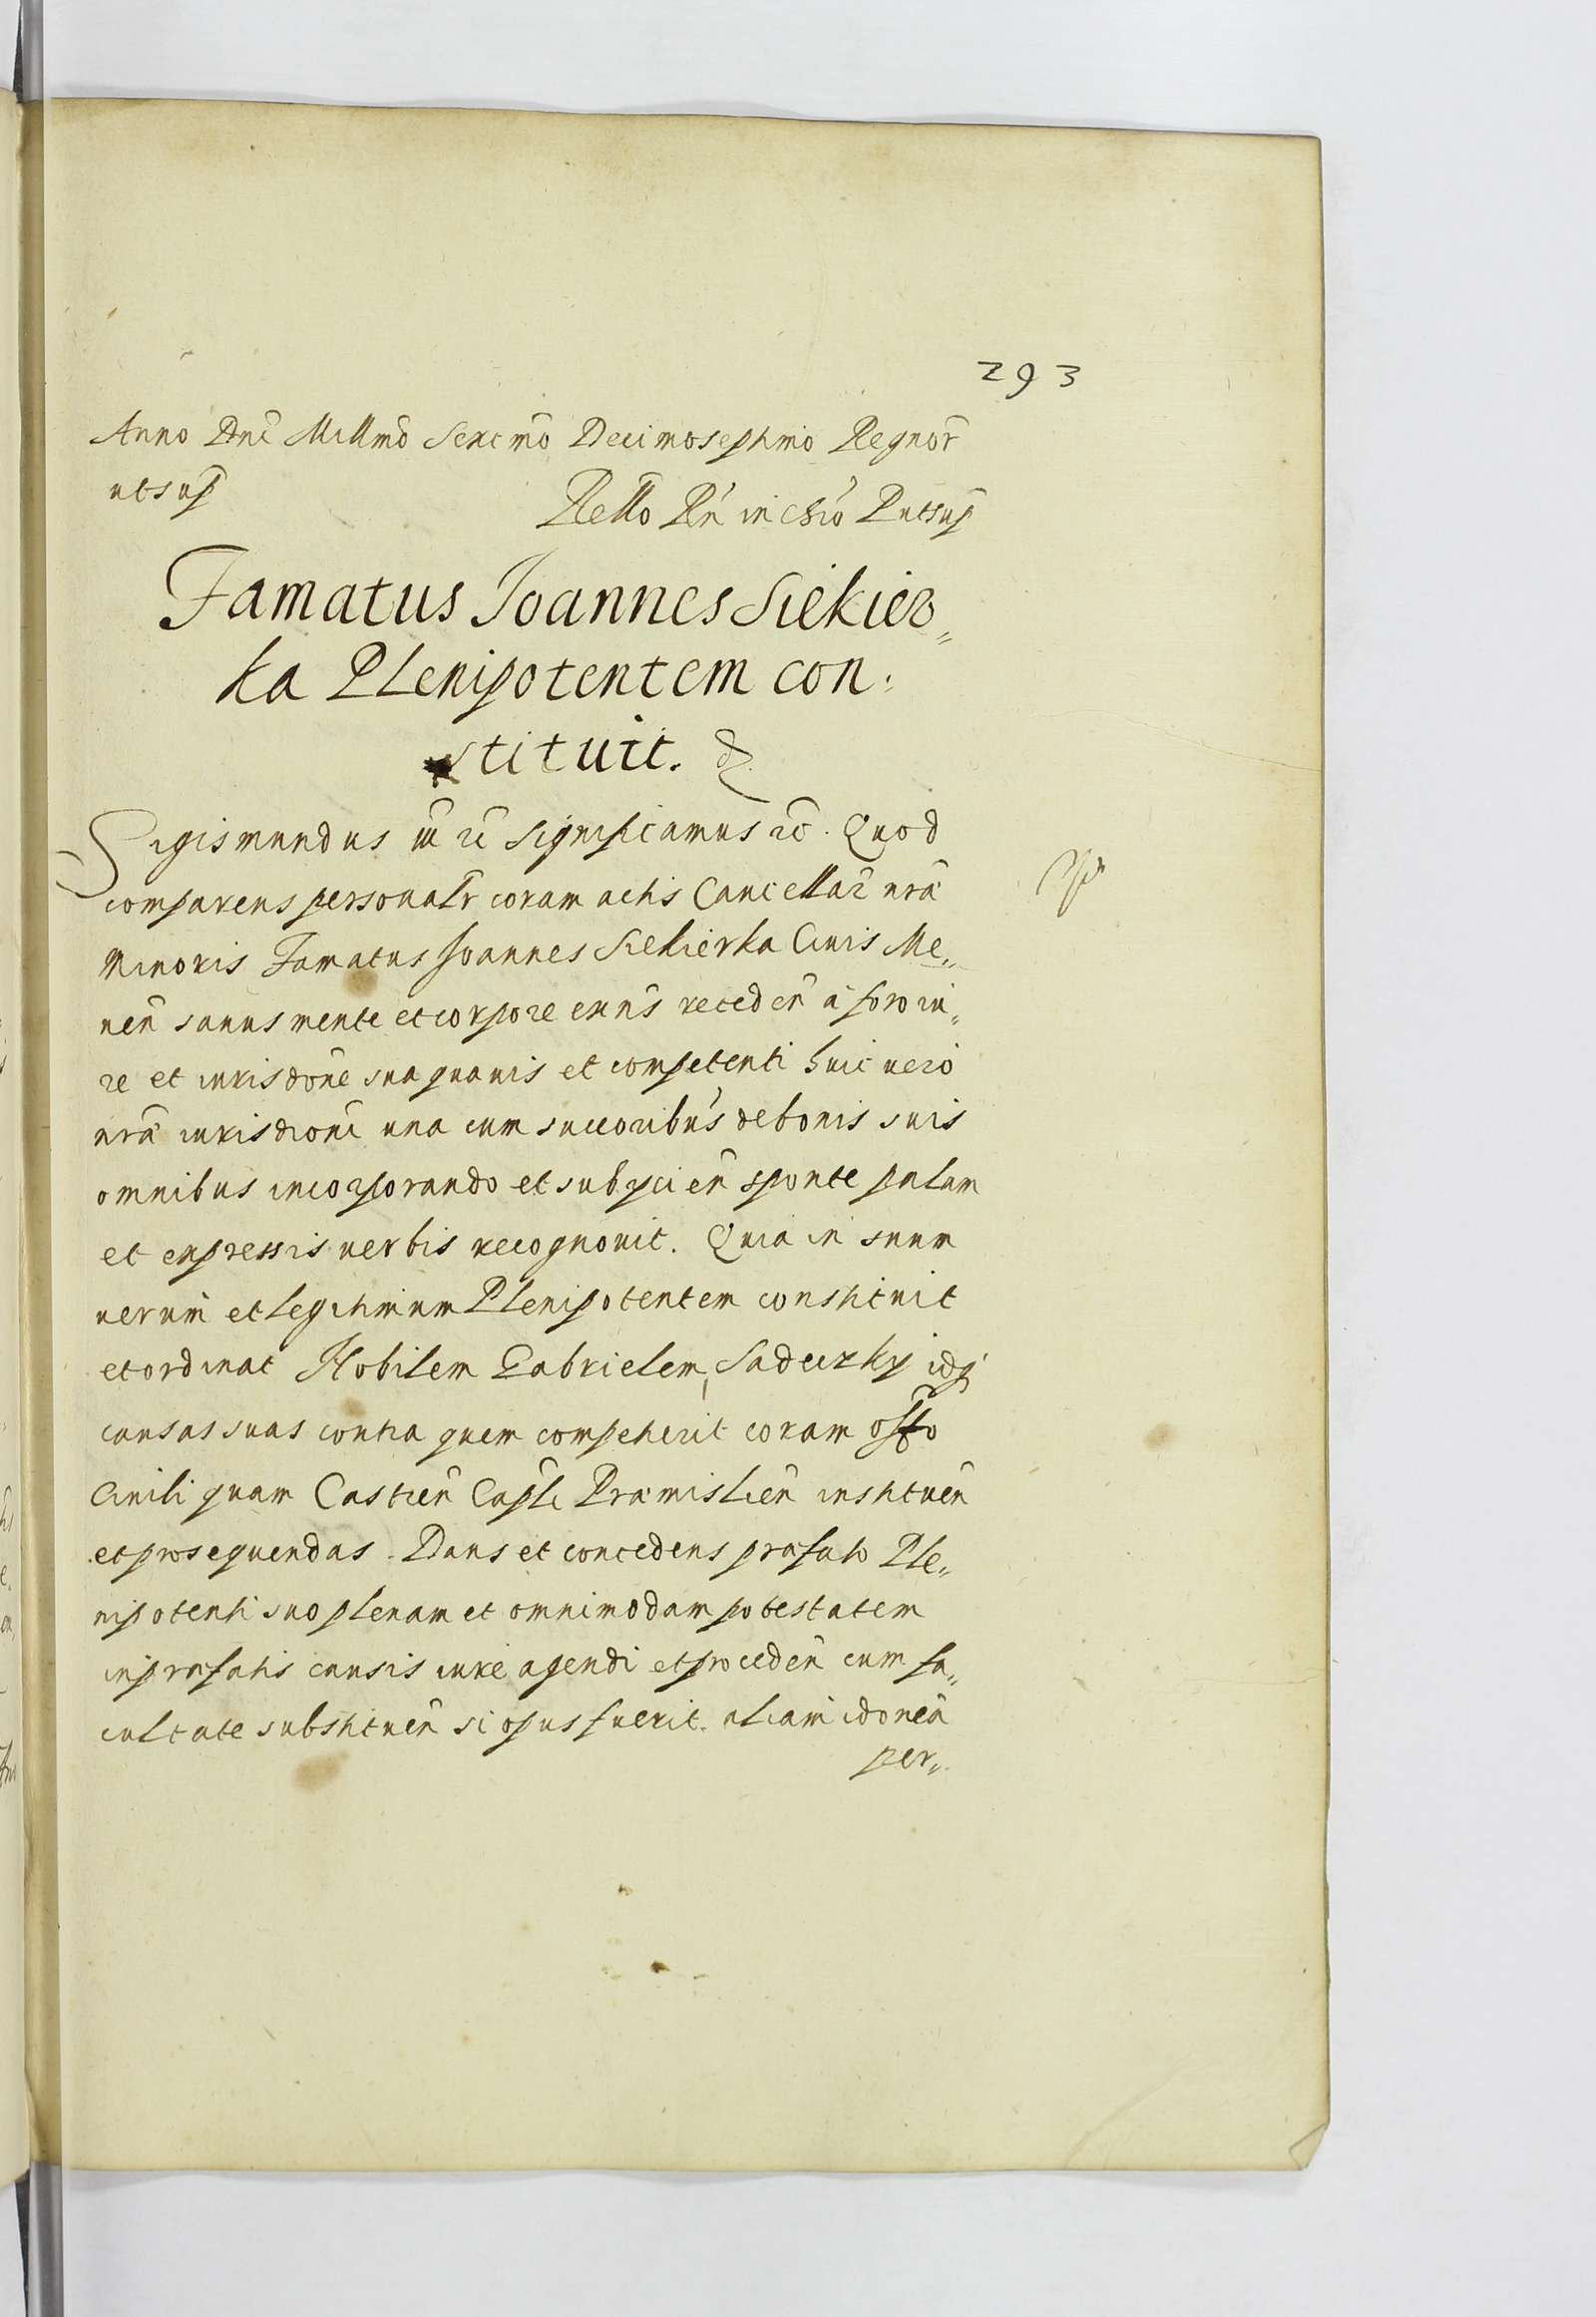 293
Anno Dni Millmo Sexcmo Decimoseptimo Regnor
utsup
Rello Rn in
Famatus Joannes Siekier„
ka Plenipotentem con:
stituit.
Sigismundus iii rc significamus rc. Quod
comparens personalr coram actis Cancellar nrā
Minoris Famatus Joannes Siekierka Civis Me„
nen sanus mente et corpore exns receden à foro iu„
re et iurisdone sua quavis et competenti huic vero
nrā iurisdioni una cum succoribus de bonis suis
omnibus incorporando et subycien sponte palam
et expressis verbis recognovit. Quia in suum
verum et legitimum Plenipotentem constituit
et ordinat Nobilem Gabrielem Sadeczky idq
causas suas contra quem competierit coram offo
Civili quam Castren Captli Præmislien instituen
et prosequendas. Dans et concedens præfato Ple„
nipotenti suo plenam et omnimodam potestatem
in præfatis causis iure agendi et proceden cum fa„
cultate substituen si opus fuerit. aliam idoneā
per„